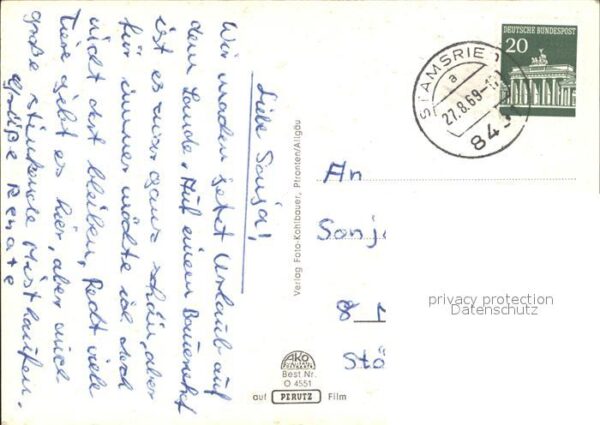 Liebe Sonja!
Wir machen jetzt Urlaub auf
dem Lande. Auf einem Bauernhof
ist es zwar ganz schön, aber
für immer möchte ich doch
nicht dort bleiben. Recht viele
Tiere gibt es hier, aber auch
große stinkende Misthaufen.
Grüße Renate
Verlag Foto-Kohlbauer, Pfronten/Allgäu
AKO
Best. Nr.
O 4551
auf PERUTZ Film
STAMSRIED
a
27.8.69-1
8431
20 DEUTSCHE BUNDESPOST
An
Sonj
8
Stö
privacy protection
Datenschutz